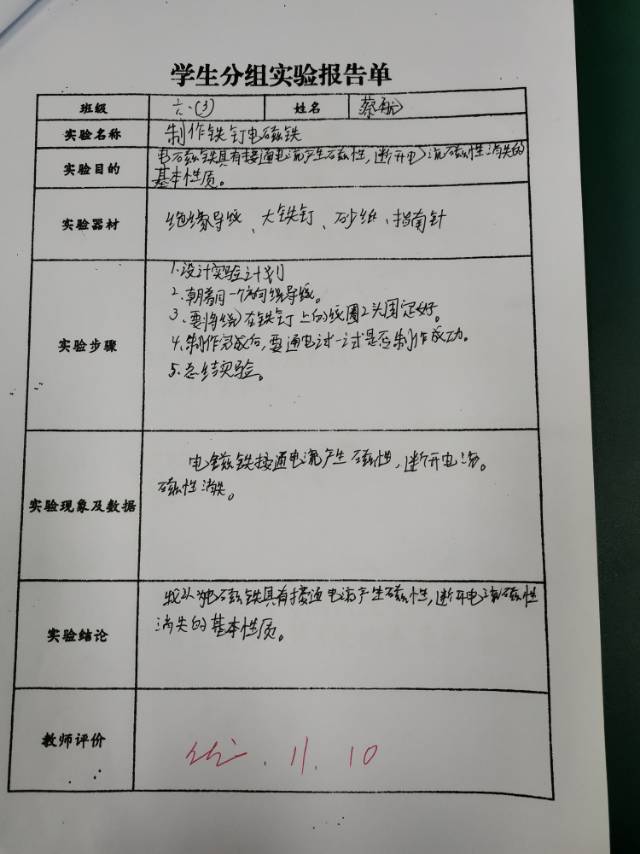 学生分组实验报告单
班级 六(3) 姓名 蔡航
实验名称 制作铁钉电磁铁
实验目的 电磁铁具有接通电流产生磁性,断开电流磁性消失的
基本性质。
实验器材 绝缘导线、大铁钉、砂纸、指南针
实验步骤
1.设计实验计划
2.朝着同一个方向绕导线。
3.要将绕在铁钉上的线圈2头固定好。
4.制作完成后,要通电试一试是否制作成功。
5.总结实验。
实验现象及数据
电磁铁接通电流产生磁性,断开电流。
磁性消失。
实验结论
电磁铁具有接通电流产生磁性,断开电流磁性
消失的基本性质。
教师评价
11.10